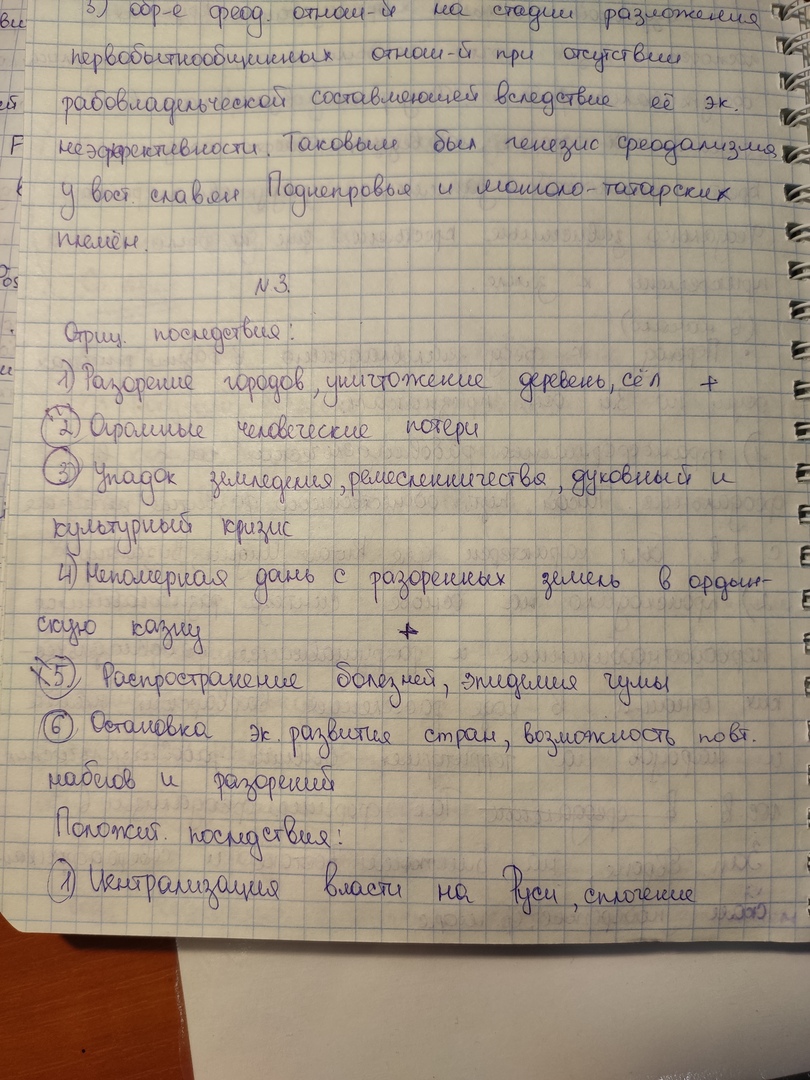 3) обр-е феод. отнош-й на стадии разложения
первобытнообщинных отнош-й при отсутствии
рабовладельческой составляющей вследствие её эк.
неэффективности. Таковым был генезис феодализма
у вост. славян Поднепровья и монголо-татарских
племён.
N 3.
Отриц. последствия:
1) Разорение городов, уничтожение деревень, сёл +
2) Огромные человеческие потери
3) Упадок земледелия, ремесленничества, духовный и
культурный кризис
4) Непомерная дань с разоренных земель в ордын-
скую казну +
5) Распространение болезней, эпидемия чумы
6) Остановка эк. развития стран, возможность повт.
набегов и разорений
Положит. последствия:
1) Централизация власти на Руси, сплочение